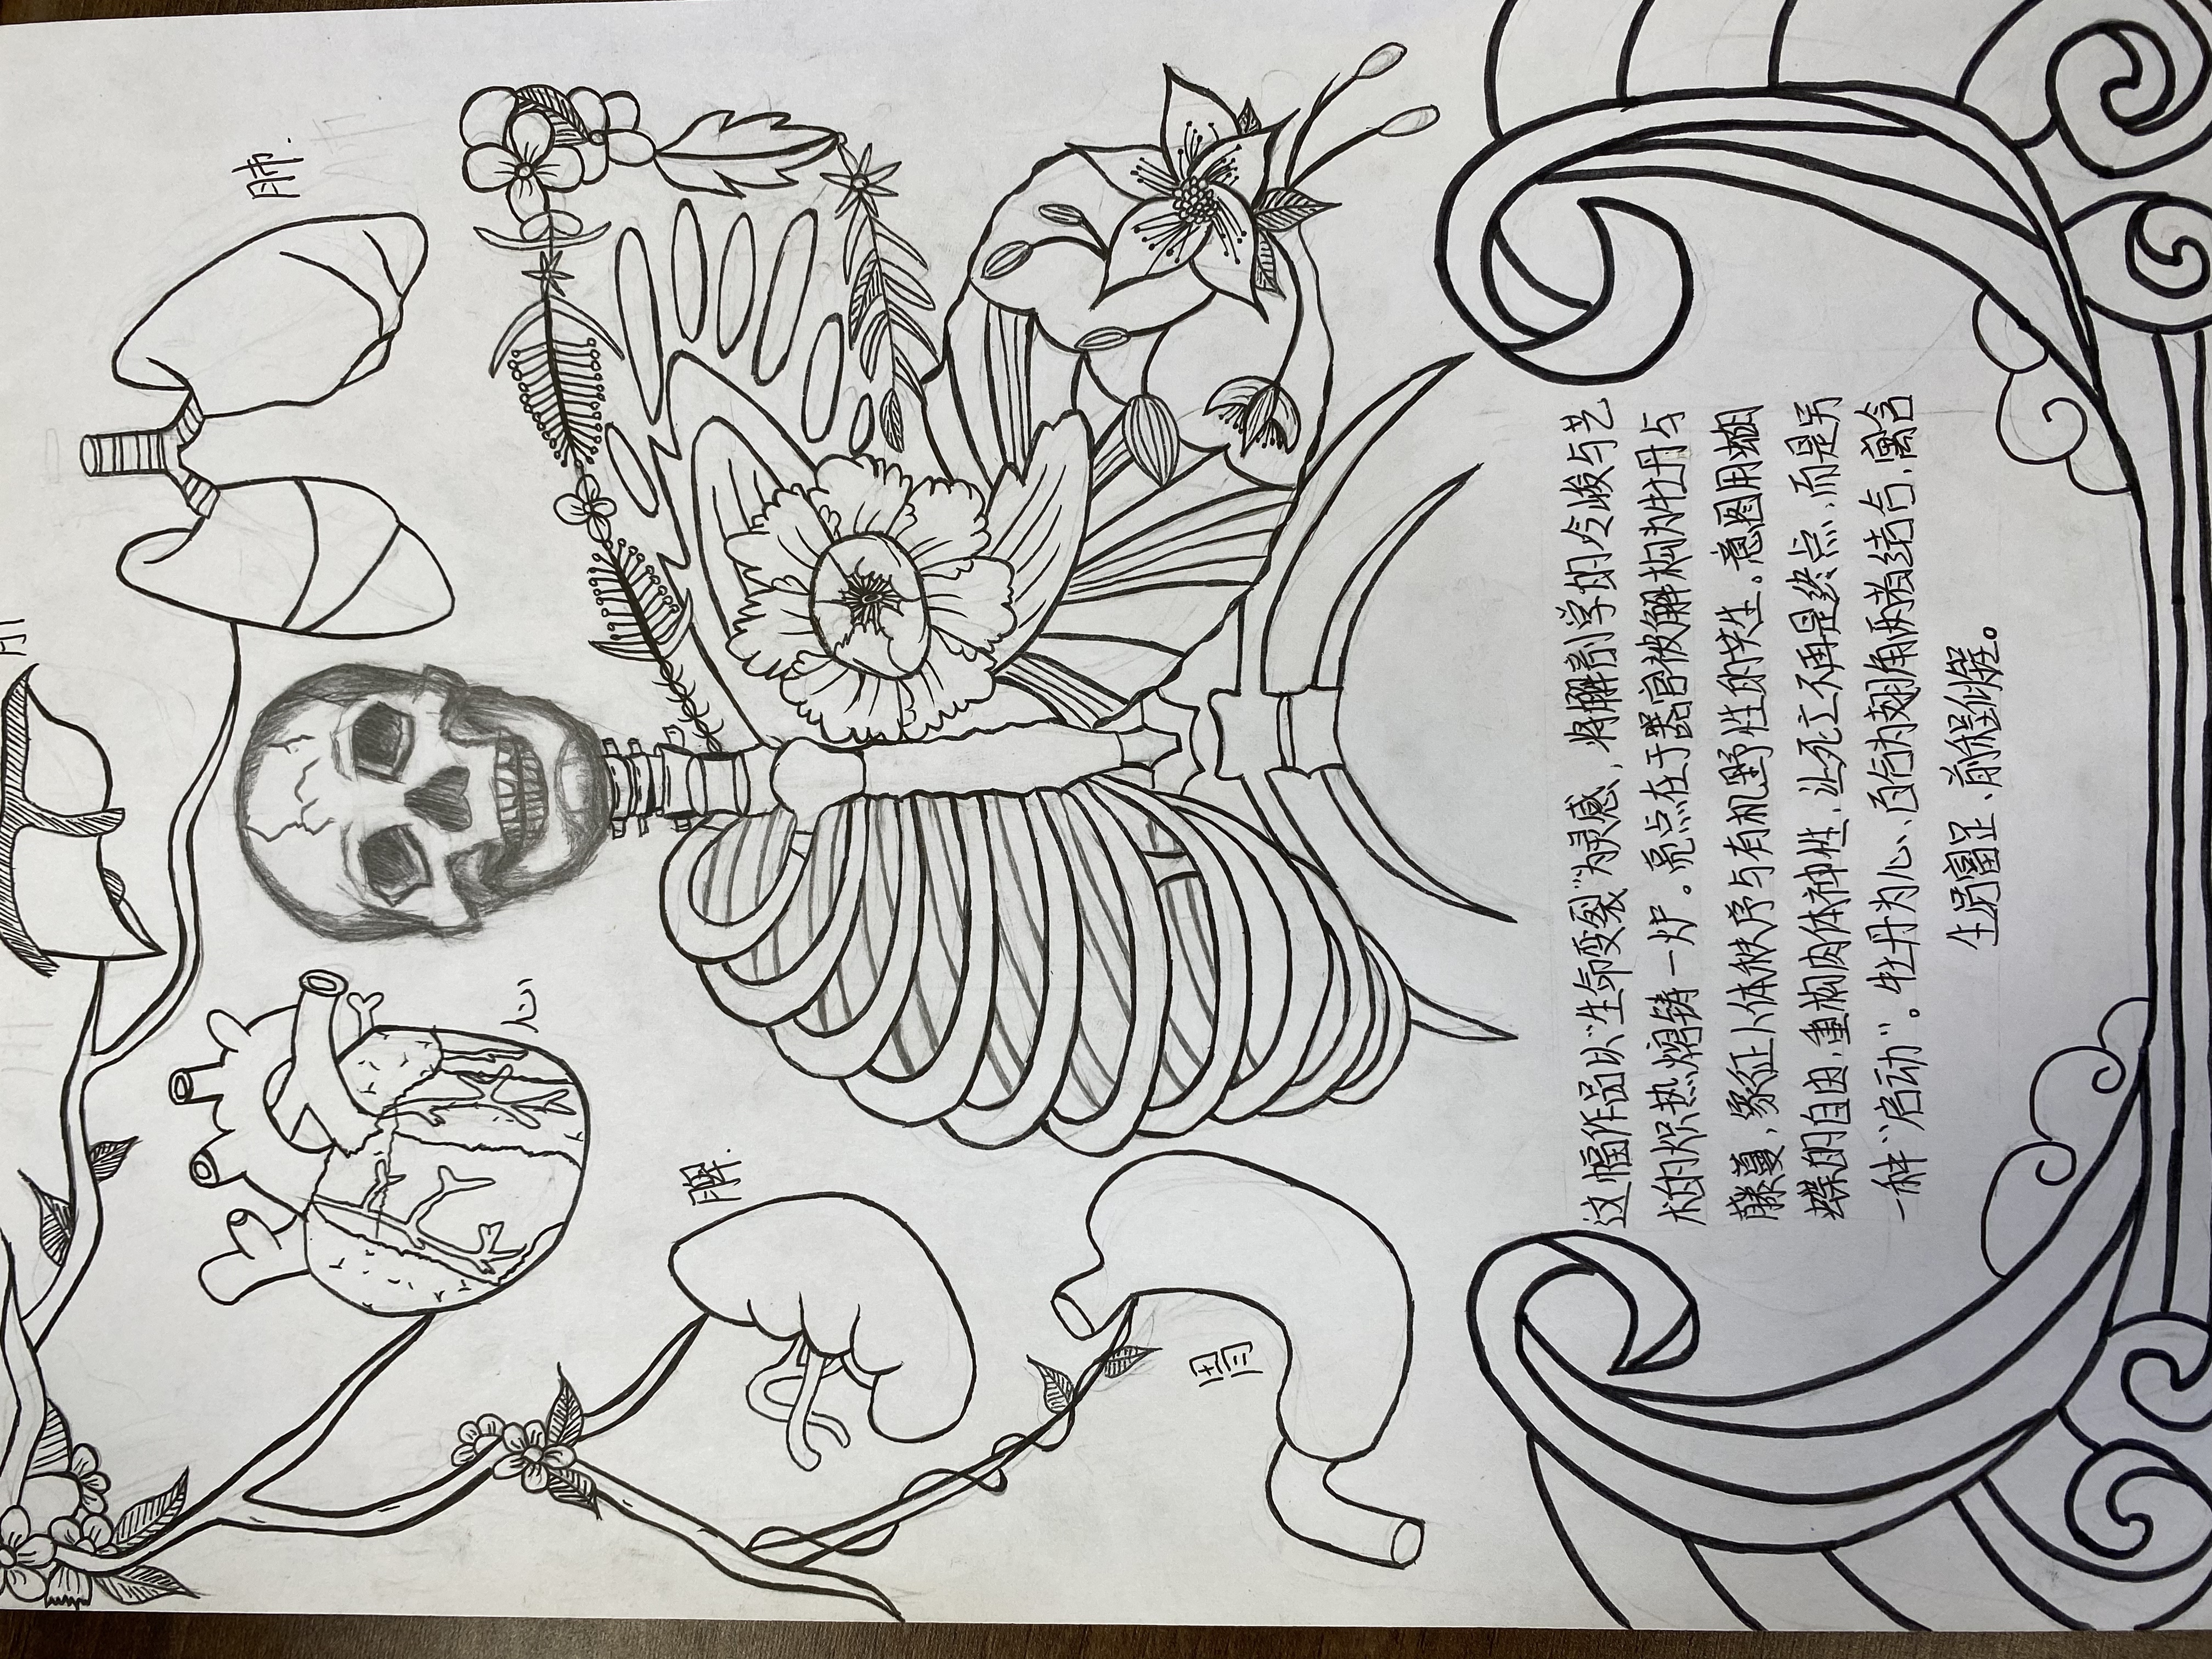 肺.
心
脾.
胃
这幅作品以“生命变裂”为灵感，将解剖学的冷峻与艺
术的炽热熔铸一炉。亮点在于器官被解构为牡丹与
藤蔓，象征人体秩序与有机野性的共生。意图用蝴
蝶的自由，重构肉体神性，让死亡不再是终点，而是另
一种“启动”。牡丹为心、百合为翅两者结合、寓含
富足、前程似锦。